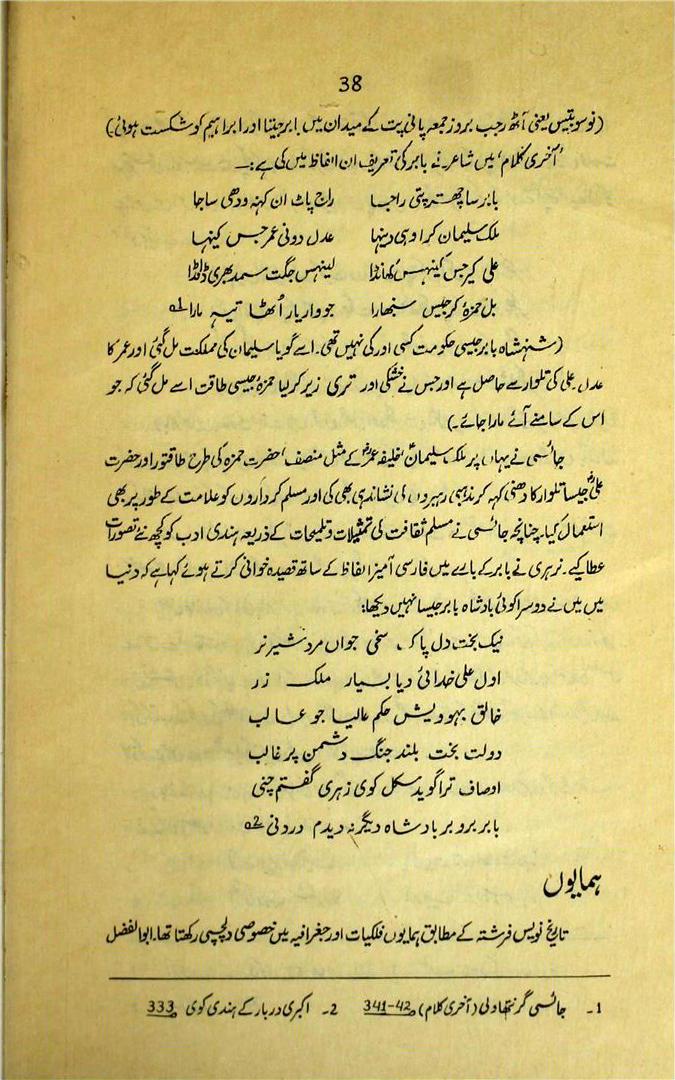 38
(نو سو بتیس یعنی آٹھ رجب بروز جمعہ پانی پت کے میدان میں بابر جیتا اور ابراہیم کو شکست ہوئی)
'آخری کلام' میں شاعر نے بابر کی تعریف ان الفاظ میں کی ہے:۔
بابر سا چھتر پتی راجا راج پاٹ ان کہنہ ودھی ساجا
ملک سلیمان کر اوہی دینہا عدل دونی عمر جس کینہا
علی کیر جس کینہس کھانڈا لینہس جگت سمد بھری ڈانڈا
بل حمزہ کر جیس سنبھارا جو واریار اُٹھا تیہہ مارا 1
(شہنشاہ بابر جیسی حکومت کسی اور کی نہیں تھی۔ اسے گویا سلیمان کی مملکت مل گئی اور عمر کا
عدل۔ علی کی تلوار سے حاصل ہے اور جس نے خشکی اور تری زیر کر لیا حمزہ جیسی طاقت اسے مل گئی کہ جو
اس کے سامنے آئے مارا جائے۔)
جائسی نے یہاں پر ملک سلیمانؑ، خلیفہ عمرؓ کے مثل منصف، حضرت حمزہ کی طرح طاقتور اور حضرت
علیؓ جیسا تلوار کا دھنی کہہ کر مذہبی رہبروں کی نشاندہی بھی کی اور مسلم کرداروں کو علامت کے طور پر بھی
استعمال کیا۔ چنانچہ جائسی نے مسلم ثقافت کی تمثیلات و تلمیحات کے ذریعہ ہندی ادب کو کچھ نئے تصورات
عطا کیے۔ نرہری نے بابر کے بارے میں فارسی آمیز الفاظ کے ساتھ قصیدہ خوانی کرتے ہوئے کہا ہے کہ دنیا
میں میں نے دوسرا کوئی بادشاہ بابر جیسا نہیں دیکھا:
نیک بخت دل پاک، سخی جواں مرد شیر نر
اول علی خدائی دیا بسیار ملک زر
خالق بہو ویش حکم عالیا جو عالب
دولت بخت بلند جنگ دشمن پر غالب
اوصاف ترا گوید سکل کوی نرہری گفتم چنی
بابر برو بر بادشاہ دیگر نہ دیدم دردنی 2
ہمایوں
تاریخ نویس فرشتہ کے مطابق ہمایوں فلکیات اور جغرافیہ میں خصوصی دلچسپی رکھتا تھا۔ ابوالفضل
1۔ جائسی گرنتھاولی (آخری کلام) 341-42 2۔ اکبری دربار کے ہندی کوی 333